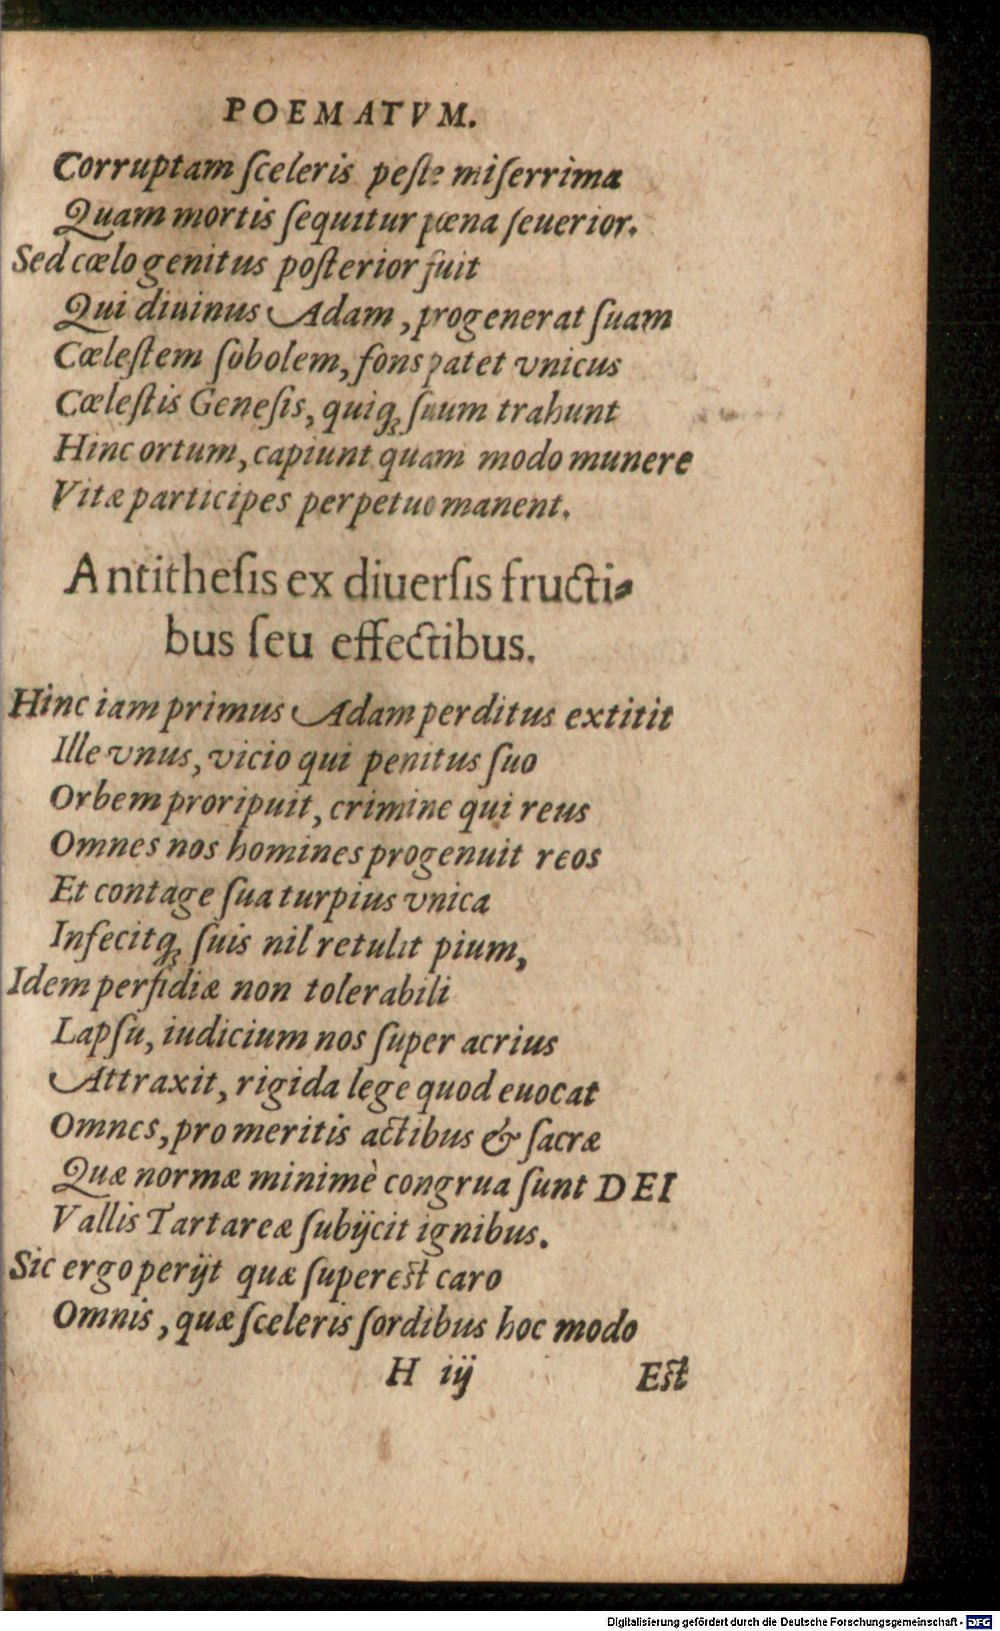 POEMATVM.
Corruptam ſceleris peſte miſerrima
Quam mortis ſequitur pœna ſeuerior.
Sed cœlo genitus poſterior fuit
Qui diuinus Adam, progenerat ſuam
Cœleſtem ſobolem, fons patet vnicus
Cœleſtis Geneſis, quiq́ꝫ ſuum trahunt
Hinc ortum, capiunt quam modo munere
Vitæ participes perpetuo manent.
Antitheſis ex diuerſis fructi-
bus ſeu effectibus.
Hinc iam primus Adam perditus extitit
Ille vnus, vicio qui penitus ſuo
Orbem proripuit, crimine qui reus
Omnes nos homines progenuit reos
Et contage ſua turpius vnica
Infecitq́ꝫ ſuis nil retulit pium,
Idem perfidiæ non tolerabili
Lapſu, iudicium nos ſuper acrius
Attraxit, rigida lege quod euocat
Omnes, pro meritis actibus & ſacræ
Quæ normæ minimè congrua ſunt DEI
Vallis Tartareæ ſubijcit ignibus.
Sic ergo perijt quæ ſupereſt caro
Omnis, quæ ſceleris ſordibus hoc modo
H iij
Eſt
Digitalisierung gefördert durch die Deutsche Forschungsgemeinschaft - DFG